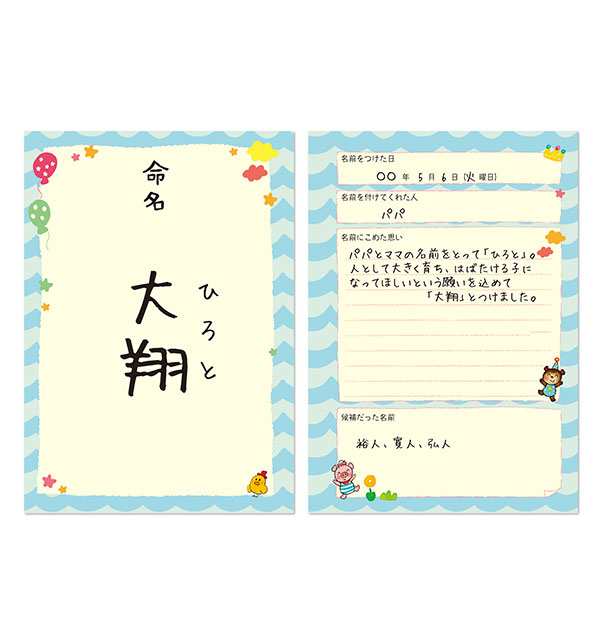 命名
大翔
ひろと
名前をつけた日
○○年 5月6日(火曜日)
名前を付けてくれた人
パパ
名前にこめた思い
パパとママの名前をとって「ひろと」。
人として大きく育ち、はばたける子に
なってほしいという願いを込めて
「大翔」とつけました。
候補だった名前
裕人、寛人、弘人